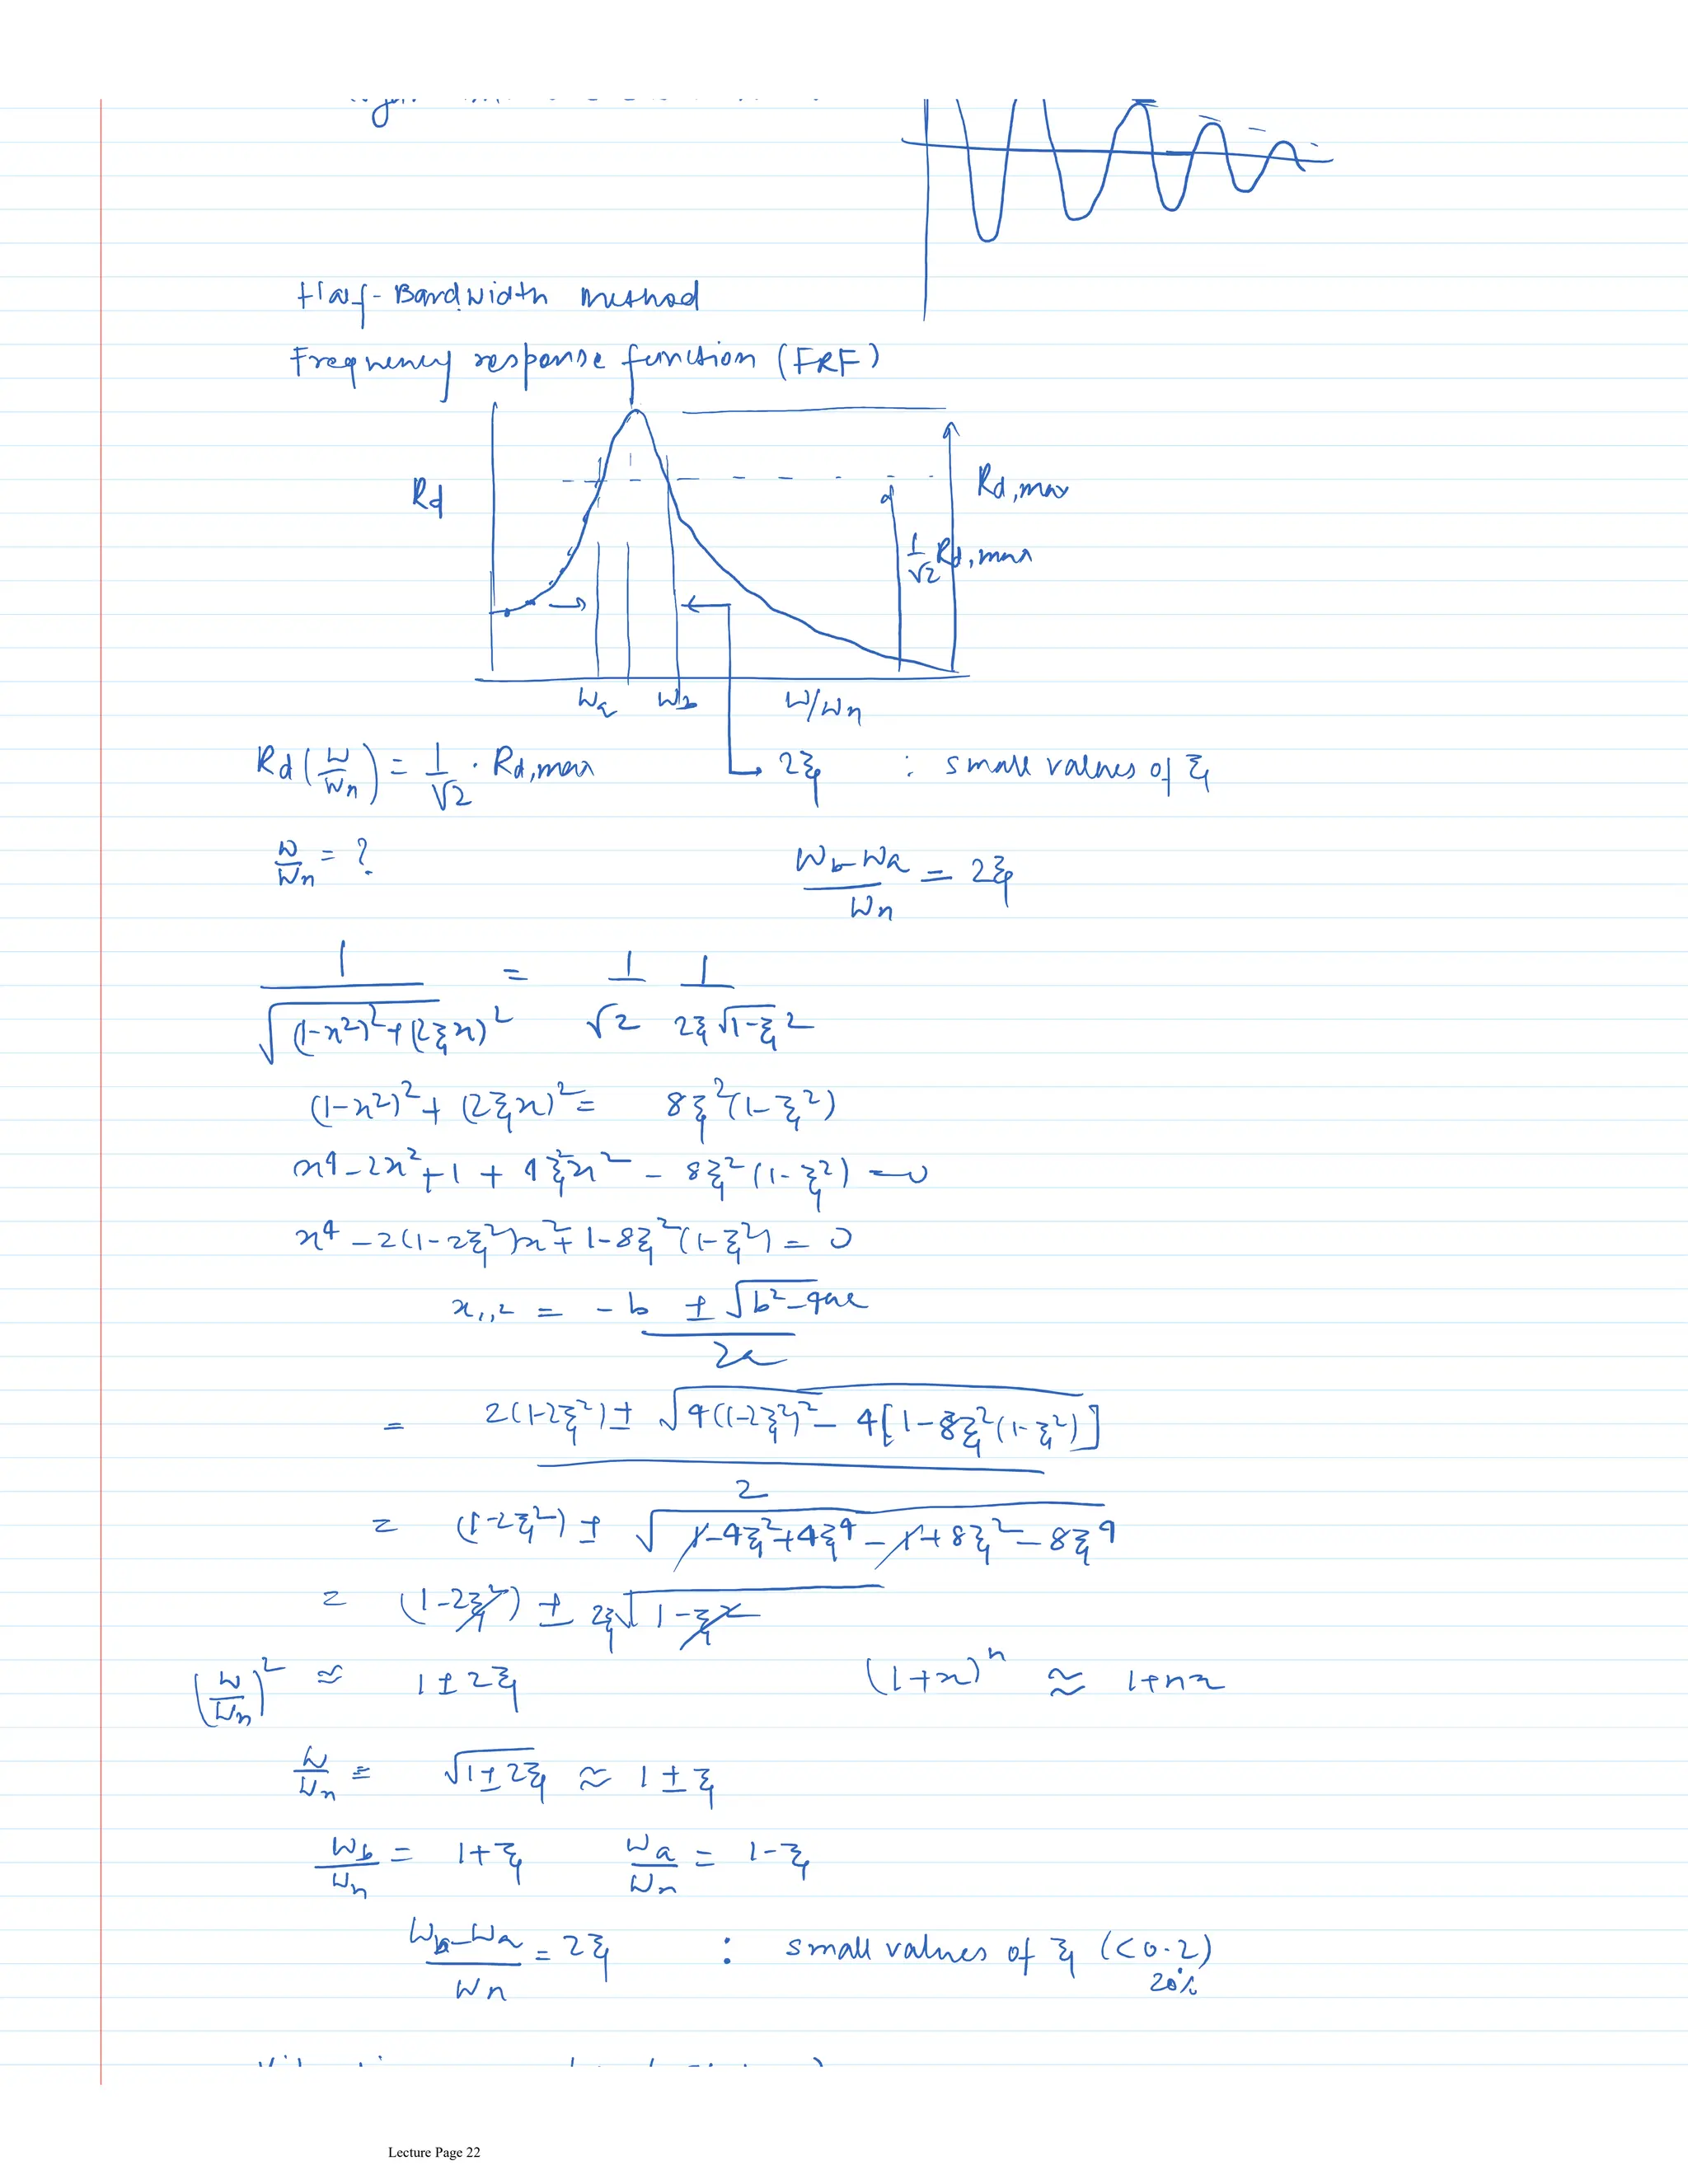 Half-Bandwidth method
Frequency response function (FRF)
Rd
Rd,max
1/√2 Rd,max
ωa ωb ω/ωn
Rd(ω/ωn) = 1/√2 · Rd,max
2ξ : small values of ξ
ω/ωn = ?
(ωb-ωa)/ωn = 2ξ
1/√((1-x²)²+(2ξx)²) = 1/√2 1/(2ξ√(1-ξ²))
(1-x²)² + (2ξx)² = 8ξ²(1-ξ²)
x⁴ - 2x² + 1 + 4ξ²x² - 8ξ²(1-ξ²) = 0
x⁴ - 2(1-2ξ²)x² + 1-8ξ²(1-ξ²) = 0
x₁,₂ = (-b ± √(b²-4ac))/2a
= (2(1-2ξ²) ± √(4(1-2ξ²)² - 4[1-8ξ²(1-ξ²)]))/2
= (1-2ξ²) ± √(1-4ξ²+4ξ⁴-1+8ξ²-8ξ⁴)
= (1-2ξ²) ± 2ξ√(1-ξ²)
(ω/ωn)² ≈ 1±2ξ
(1+x)ⁿ ≈ 1+nx
ω/ωn = √(1±2ξ) ≈ 1±ξ
ωb/ωn = 1+ξ ωa/ωn = 1-ξ
(ωb-ωa)/ωn = 2ξ : small values of ξ (<0.2)
20%
Lecture Page 22